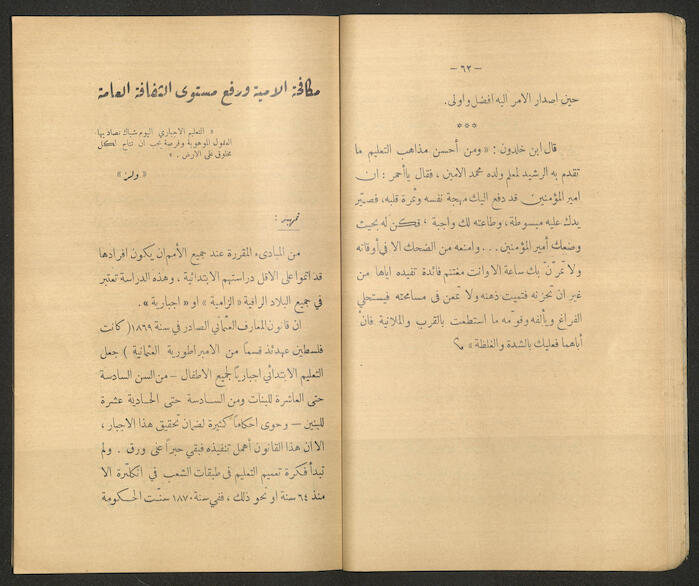 — ٦٣ —
حين اصدار الامر اليه افضل واولى.
***
قال ابن خلدون : « ومن أحسن مذاهب التعليم ما
تقدم به الرشيد لمعلم ولده محمد الامين ، فقال ياأحمر : ان
امير المؤمنين قد دفع اليك مهجة نفسه وثمرة قلبه، فصير
يدك عليه مبسوطة ، وطاعته لك واجبة ، فكن له بحيث
وضعك أمير المؤمنين . . . وامنعه من الضحك الا في أوقاته
ولا تمرّنّ بك ساعة الا وانت مغتنم فائدة تفيده اياها من
غير ان تحزنه فتميت ذهنه ولا تمعن في مسامحته فيستحلي
الفراغ ويألفه وقوّمه ما استطعت بالقرب والملاينة فان
أباهما فعليك بالشدة والغلظة »
مكافحة الامية ورفع مستوى الثقافة العامة
« التعليم الاجباري اليوم شباك نصاد بها
العقول الموهوبة وفرصة يجب ان تتاح لكل
مخلوق على الارض . »
« ولز »
تمهيد :
من المبادىء المقررة عند جميع الأمم ان يكون افرادها
قد اتموا على الاقل دراستهم الابتدائية ، وهذه الدراسة تعتبر
في جميع البلاد الراقية « الزامية » او « اجبارية ».
ان قانون المعارف العثماني الصادر في سنة ١٨٦٩ ( كانت
فلسطين عهدئذ قسماً من الامبراطورية العثمانية ) جعل
التعليم الابتدائي اجبارياً لجميع الاطفال – من السن السادسة
حتى العاشرة للبنات ومن السادسة حتى الحادية عشرة
للبنين – وحوى احكاماً كثيرة لضمان تحقيق هذا الاجبار ،
الا ان هذا القانون أهمل تنفيذه فبقي حبراً على ورق . ولم
تبدأ فكرة تعميم التعليم في طبقات الشعب في انكلترة الا
منذ ٦٤ سنة او نحو ذلك ، ففي سنة ١٨٧٠ سنّت الحكومة